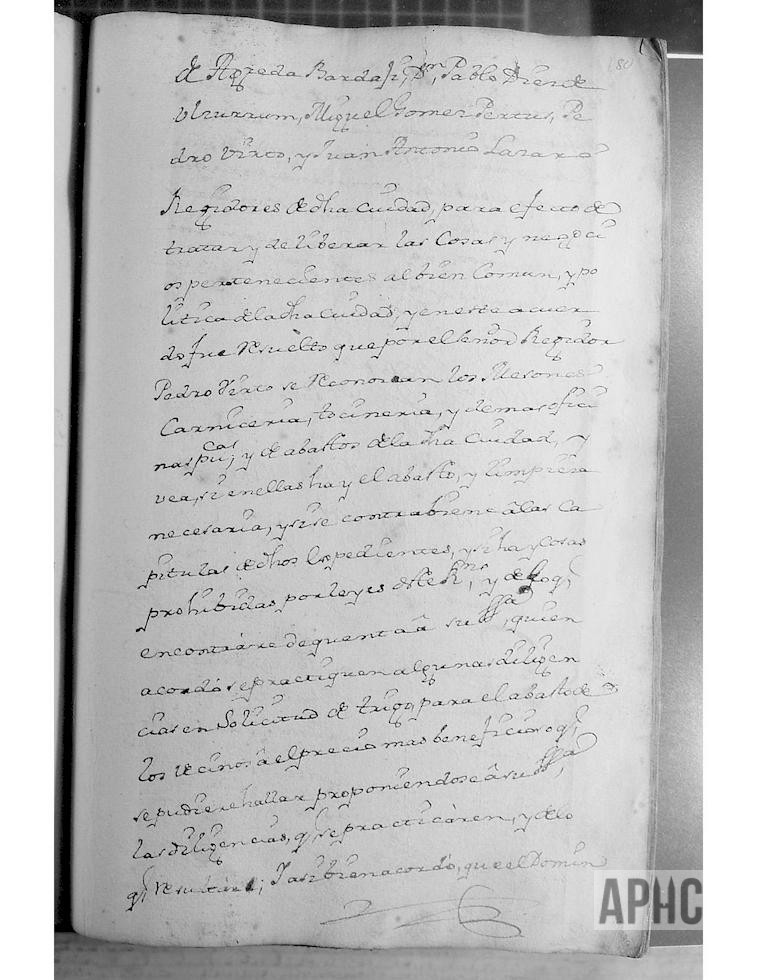 180
de Azpeda Bardaji, Dn, Pablo Diez de
Vlzurrum, Miquel Gomez Pertus, Pe
dro Virto, y Juan Antonio Lazaro
Regidores de dha Ciudad, para efecto de
tratar y deliberar las Cosas y negoci
os pertenecientes al bien Comun, y po
litica de la dha Ciudad, y en este acuer
do fue resuelto que por el señor Regidor
Pedro Virto se reconozcan los Mesones
Carniceria, tocineria, y demas ofici
nas pucas, y de abastos de la dha Ciudad, y
vea, si en ellas hay el abasto, y limpieza
necesaria, y si se contrabiene a las Ca
pitulas de dhos Expedientes, y si hay cosas
prohibidas por leyes deste Rno, y de lo q
encontrare de quenta a su ssa, quien
acordó se practiquen algunas diligen
cias en Solicitud de trigo, para el abasto de
los vecinos a el precio mas beneficioso q
se pudiere hallar proponiendose a su ssa,
las diligencias, q se practicaren, y de lo
q resultare; Y asi bien acordó, que el Domin
APHC